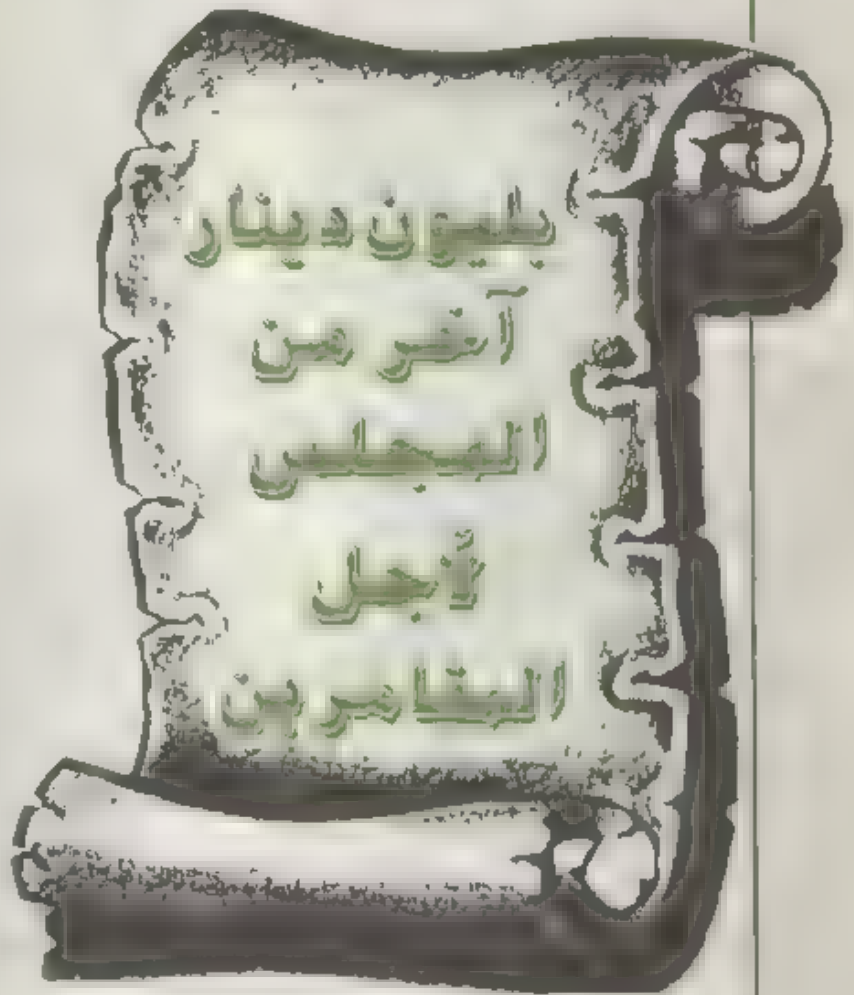 بليون دينار
آخر من
المجلس
لأجل
المقامرين